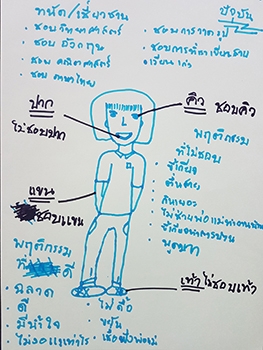 ถนัด/เชี่ยวชาญ
ปัจจุบัน
· ชอบวิทยาศาสตร์
· ชอบอังกฤษ
· ชอบ คณิตศาสตร์
· ชอบ ภาษาไทย
· ชอบการวาดรูป
· ชอบการ
เรียนเก่ง
ปาก
ไม่ชอบปาก
คิ้ว ชอบคิ้ว
แขน
ชอบแขน
พฤติกรรม
ที่ไม่ชอบ
· ขี้เกียจ
· ตื่นสาย
· กินเยอะ
· ไม่ช่วยพ่อแม่ทำงานบ้าน
· ขี้เกียจทำการบ้าน
· พูดมาก
เท้า ไม่ชอบเท้า
พฤติกรรม
ที่ ดี
· ฉลาด
· ดี
· มีน้ำใจ
· ไม่งอแง
· ไม่ดื้อ
· ขยัน
· เชื่อฟังพ่อแม่